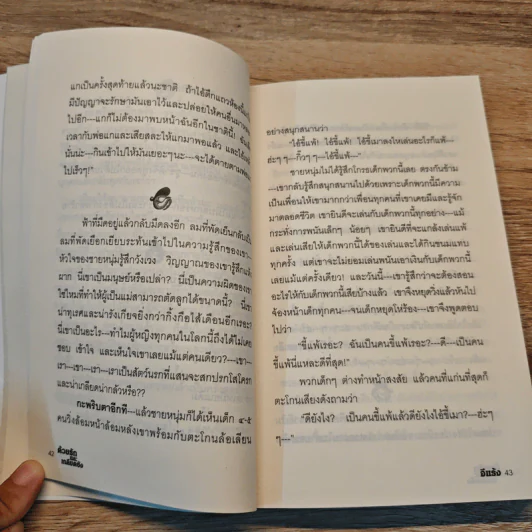 แกเป็นครั้งสุดท้ายแล้วนะชาติ ถ้าไอ้ตึกแถวห้อง
มีปัญญาจะรักษามันเอาไว้และปล่อยให้คนอื่นมา
ไปอีก---แกก็ไม่ต้องมาพบหน้าฉันอีกในชาตินี้!
เวลากับพ่อแกและเสียสละให้แกมาพอแล้ว
นั่นน่ะ---กินเข้าไปให้มันเยอะๆนะ---จะได้ตายตาม
ไปเร็วๆ!"
ฟ้าที่มืดอยู่แล้วกลับมืดลงอีก ลมที่พัดเย็นกลับ
ลมที่พัดเยือกเยียบระทันเข้าไปในความรู้สึกของเขา
หัวใจของชายหนุ่มรู้สึกวังเวง วิญญาณของเขารู้สึก
มาก นี่เขาเป็นมนุษย์หรือเปล่า? นี่เป็นความผิดของ
ใช่ไหมที่ทำให้ผู้เป็นแม่สามารถตัดลูกได้ขนาดนี้?
น่าทุเรศและน่ารังเกียจยิ่งกว่ากิ้งกือไส้เดือนอีกเธอะ?
นี่เขาเป็นอะไร---ทำไมผู้หญิงทุกคนในโลกนี้ถึงได้ไม่เคย
ชอบ เข้าใจ และเห็นใจเขาเลยแม้แต่คนเดียว?---เขา---
เรา---เรา---เรา---เราเป็นสัตว์นรกที่แสนจะสกปรกโสโครก
และน่าเกลียดน่ากลัวหรือ??
กะพริบตาอีกที---แล้วชายหนุ่มก็ได้เห็นเด็ก ๔-๕
คนวิ่งล้อมหน้าล้อมหลังเขาพร้อมกับตะโกนล้อเลียน
42
อย่างสนุกสนานว่า
"ไอ้ขี้แพ้! ไอ้ขี้แพ้! ไอ้ขี้เมาลงใหเล่นอะไรกันแพ้---
ฮ่ะๆ ๆ---กิ๊วๆ ๆ---ไอ้ขี้แพ้---"
ชายหนุ่มไม่ได้รู้สึกโกรธเด็กพวกนี้เลย ตรงกันข้าม
---เขากลับรู้สึกสนุกสนานไปด้วยเพราะเด็กพวกนี้มีความ
เป็นเพื่อนให้เขามากกว่าเพื่อนทุกคนที่เขาเคยมีและรู้จัก
มาตลอดชีวิต เขายินดีจะเล่นกับเด็กพวกนี้ทุกอย่าง---แม้
กระทั่งการพนันเล็กๆ น้อยๆ เขายินดีที่จะแกล้งเล่นแพ้
และเล่นเสียให้เด็กพวกนี้ได้ของเล่นและได้กินขนมแทบ
ทุกครั้ง แต่เขาจะไม่ยอมเล่นพนันเอาเงินกับเด็กพวกนี้
เลยแม้แต่ครั้งเดียว! และวันนี้---เขารู้สึกว่าจะต้องสอน
อะไรให้กับเด็กพวกนี้เสียบ้างแล้ว เขาจึงหยุดวิ่งแล้วหันไป
จ้องหน้าเด็กทุกคน---จนเด็กหยุดโห่ร้อง---เขาจึงพูดตอบ
ไปว่า
"ขี้แพ้เรอะ? ฉันเป็นคนขี้แพ้เรอะ?---ดี---เป็นคน
ขี้แพ้นี่แหละดีที่สุด!"
พวกเด็กๆ ต่างทำหน้าสงสัย แล้วคนที่แก่นที่สุดก็
ตะโกนเสียงดังถามว่า
"ดียังไง? เป็นคนขี้แพ้แล้วดียังไงไอ้ขี้เมา?---ฮ่ะๆ
ๆ---"
43